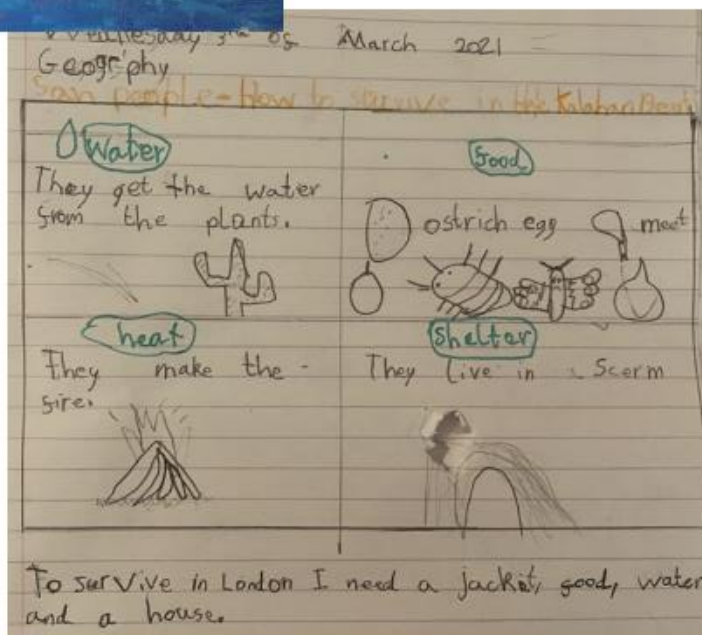 Wednesday 3rd of March 2021
Geogrphy
San people - How to survive in the Kalahari Desert
Water
They get the water
from the plants.
food
ostrich egg
meet
heat
They make the
fire.
Shelter
They live in Scerm
To survive in London I need a jacket, food, water
and a house.